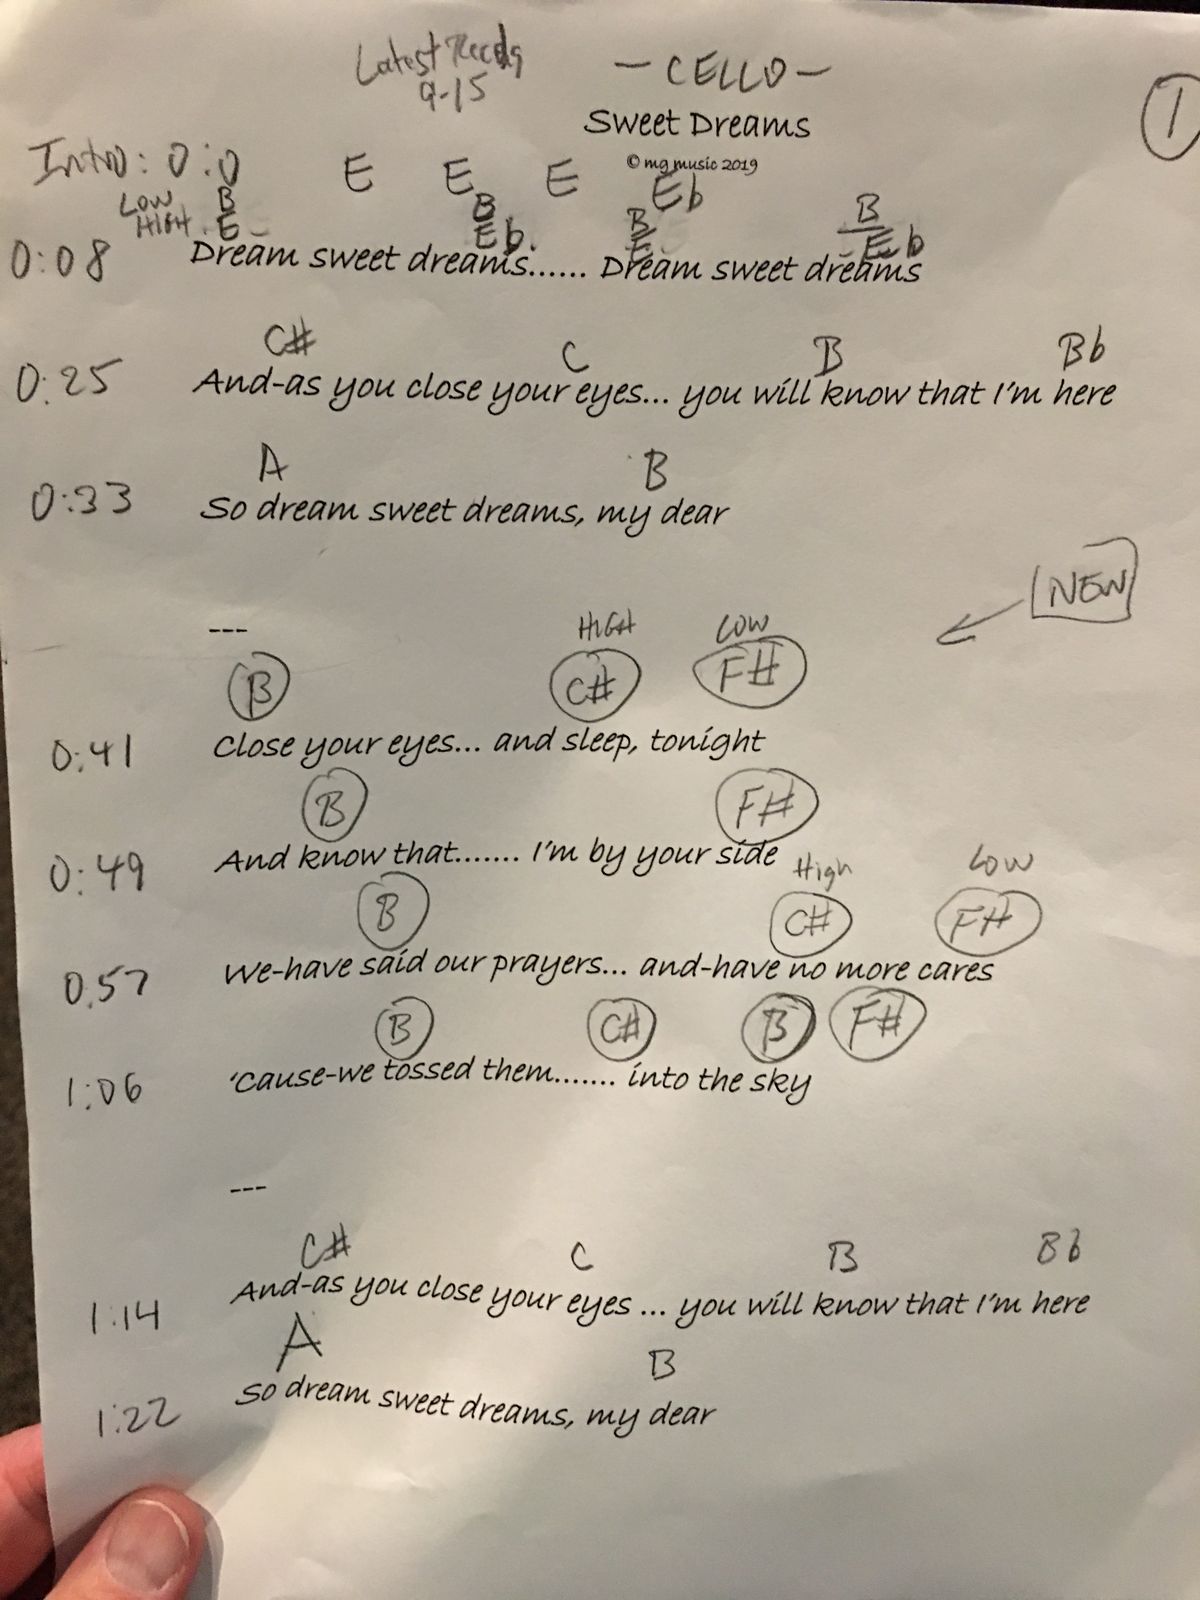 Latest Recdg — CELLO —
9-15
Sweet Dreams
1
© mg music 2019
Intro: 0:0 E E E Eb
LOW B B B B
HIGH E Eb. E Eb
0:08 Dream sweet dreams...... Dream sweet dreams
C# C B Bb
0:25 And-as you close your eyes... you will know that I'm here
A B
0:33 So dream sweet dreams, my dear
NEW
---
HIGH LOW
B C# F#
0:41 Close your eyes... and sleep, tonight
B F#
0:49 And know that....... I'm by your side
High Low
B C# F#
0:57 We-have said our prayers... and-have no more cares
B C# B F#
1:06 'Cause-we tossed them....... into the sky
---
C# C B Bb
1:14 And-as you close your eyes ... you will know that I'm here
A B
1:22 So dream sweet dreams, my dear